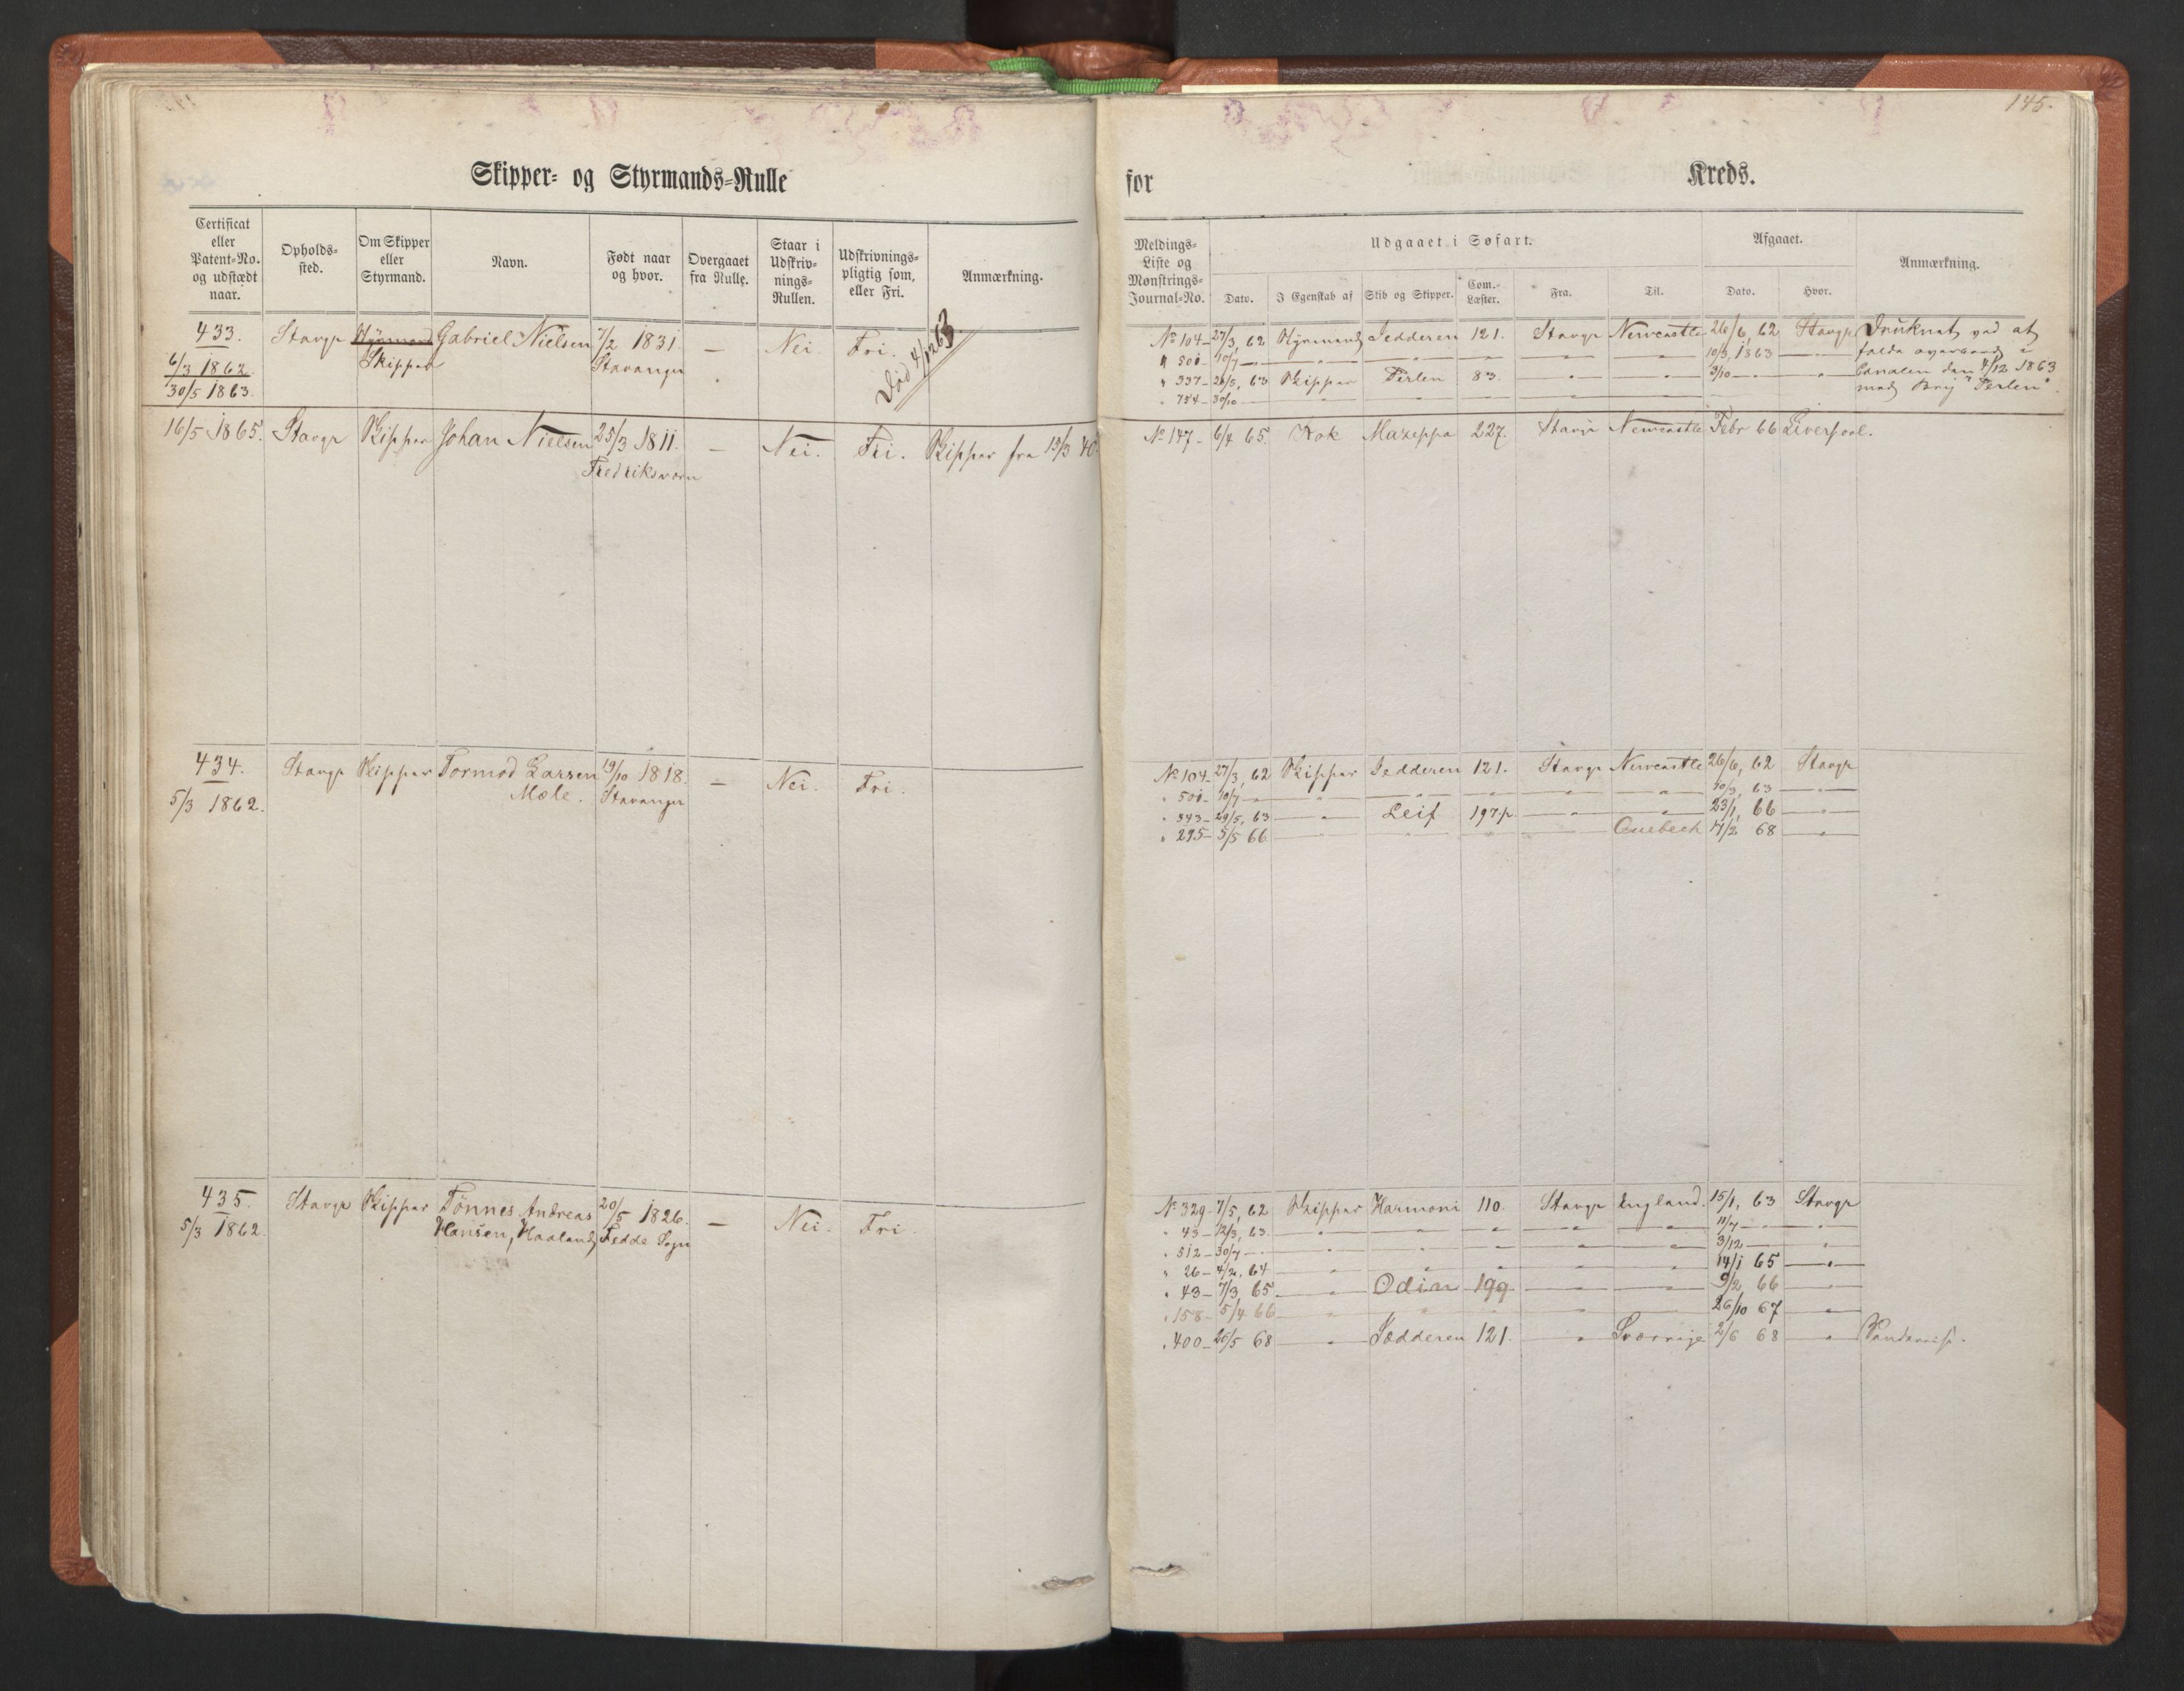 145.
Skipper- og Styrmands-Rulle
for Kreds.
Certificat eller Patent-No. og udstædt naar.
Opholds-sted.
Om Skipper eller Styrmand.
Navn.
Født naar og hvor.
Overgaaet fra Rulle.
Staar i Udskriv-nings-Rullen.
Udskrivnings-pligtig som, eller Fri.
Anmærkning.
Meldings-Liste og Mønstrings-Journal-No.
Udgaaet i Søfart.
Dato.
I Egenskab af
Skib og Skipper.
Com.-Læster.
Fra.
Til.
Afgaaet.
Dato.
Hvor.
Anmærkning.
433. Stavgr Styrmand Gabriel Nielsen 7/2 1831. — Nei. Fri. Død 4/12 63
6/3 1862. Skipper Stavanger
30/5 1863.
No 104 - 27/3, 62 Styrmand Jedderen 121. Stavgr Newcastle 26/6, 62 Stavgr Druknet ved at
" 501 - 10/7 — " — " — " — " — 10/3, 1863 — " falde overbord i
" 337 - 26/5, 63 Skipper Perlen 83. — " — " 3/10 — " — " Canalen den 4/12 1863
" 754 - 30/10 — " — " — " — " med Brig "Perlen".
16/5 1865. Stavgr Skipper Johan Nielsen 25/3 1811. — Nei. Fri. Skipper fra 13/3 40.
Fredriksværn
No 147 - 6/4 65. Kok Mazeppa 227. Stavgr Newcastle Febr 66 Liverpool.
434. Stavgr Skipper Tormod Larsen 19/10 1818. — Nei. Fri.
5/3 1862. Mæle. Stavanger
No 104 - 27/3, 62 Skipper Jedderen 121. Stavgr Newcastle 26/6, 62 Stavgr
" 501 - 10/7 — " — " — " — " — " 10/3, 63 — "
" 343 - 29/5, 63 — " Leif 197. — " — " 23/1, 66 — "
" 295 - 5/5 66 — " — " — " — " Quebeck 4/2 68 — "
435. Stavgr Skipper Tønnes Andreas 20/5 1826. — Nei. Fri.
5/3 1862. Hansen, Haaland Fedde Sogn
No 329 - 7/5, 62 Skipper Harmoni 110. Stavgr England. 15/1, 63 Stavgr
" 43 - 12/3, 63. — " — " — " — " — " 11/7 — " — "
" 512 - 30/7 — " — " — " — " — " — " 3/12 — " — "
" 26 - 4/2, 64 — " — " — " — " — " 14/1 65 — "
" 43 - 7/3, 65 — " Odin 199 — " — " 9/2, 66 — "
" 158 - 5/4 66 — " — " — " — " — " 26/10 67 — "
" 400 - 26/5 68 — " Jædderen 121. — " Sverrige 2/6 68 — "